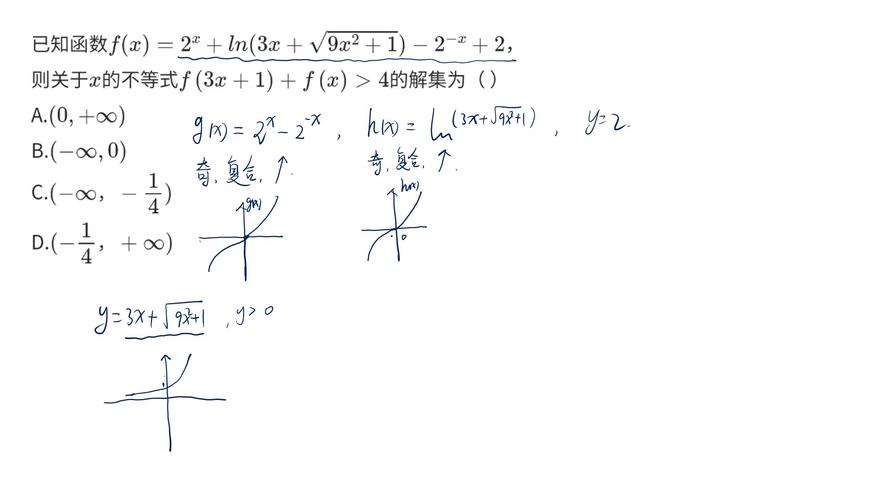 已知函数f(x) = 2^x + ln(3x + √(9x² + 1)) − 2^{−x} + 2，
则关于x的不等式f(3x + 1) + f(x) > 4的解集为（ ）
A.(0, +∞)
B.(−∞, 0)
C.(−∞, −1/4)
D.(−1/4, +∞)
g(x) = 2^x − 2^{−x} , h(x) = ln(3x+√(9x²+1)) , y=2.
奇, 复合, ↑.
奇, 复合, ↑.
g(x)
h(x)
0
y=3x+√(9x²+1) , y>0